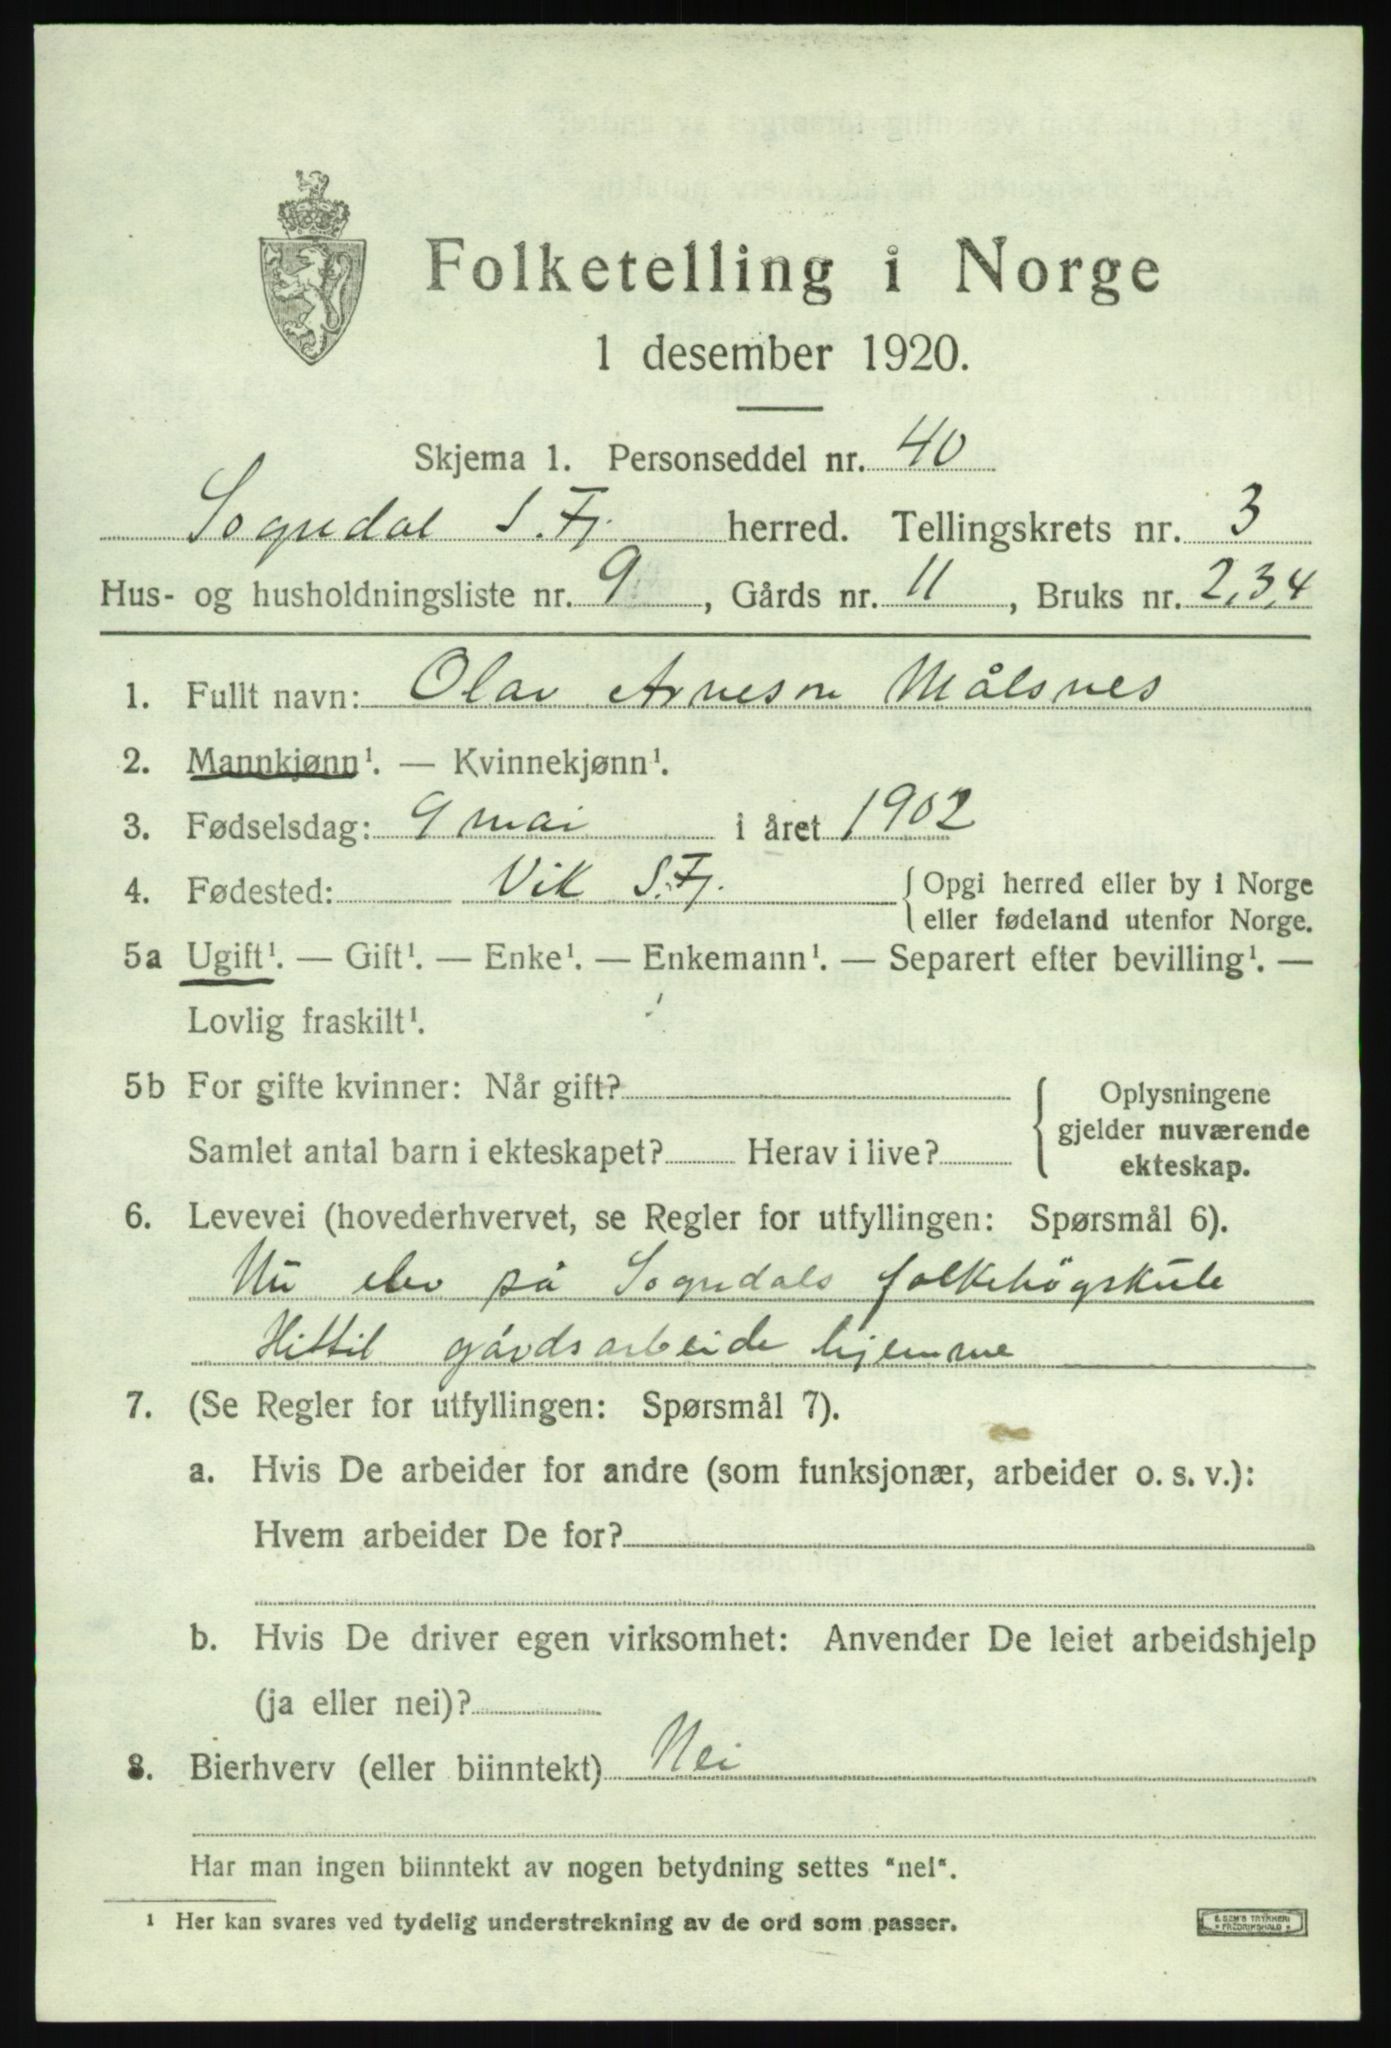 Folketelling i Norge
1 desember 1920.
Skjema 1. Personseddel nr. 40
Sogndal S. Fj. herred. Tellingskrets nr. 3
Hus- og husholdningsliste nr. 9, Gårds nr. 11, Bruks nr. 2,3,4
1. Fullt navn: Olav Arneson Målsnes
2. Mannkjønn¹. — Kvinnekjønn¹.
3. Fødselsdag: 9 mai i året 1902
4. Fødested: Vik S. Fj. { Opgi herred eller by i Norge
eller fødeland utenfor Norge.
5a Ugift¹. — Gift¹. — Enke¹. — Enkemann¹. — Separert efter bevilling¹. —
Lovlig fraskilt¹.
5b For gifte kvinner: Når gift?
Samlet antal barn i ekteskapet? Herav i live?
Oplysningene
gjelder nuværende
ekteskap.
6. Levevei (hovederhvervet, se Regler for utfyllingen: Spørsmål 6).
Nu elev på Sogndals folkehögskule
Hittil gårdsarbeide hjemme
7. (Se Regler for utfyllingen: Spørsmål 7).
a. Hvis De arbeider for andre (som funksjonær, arbeider o. s. v.):
Hvem arbeider De for?
b. Hvis De driver egen virksomhet: Anvender De leiet arbeidshjelp
(ja eller nei)?
8. Bierhverv (eller biinntekt) Nei
Har man ingen biinntekt av nogen betydning settes "nei".
¹ Her kan svares ved tydelig understrekning av de ord som passer.
E. SEM'S TRYKKERI
FREDRIKSHALD